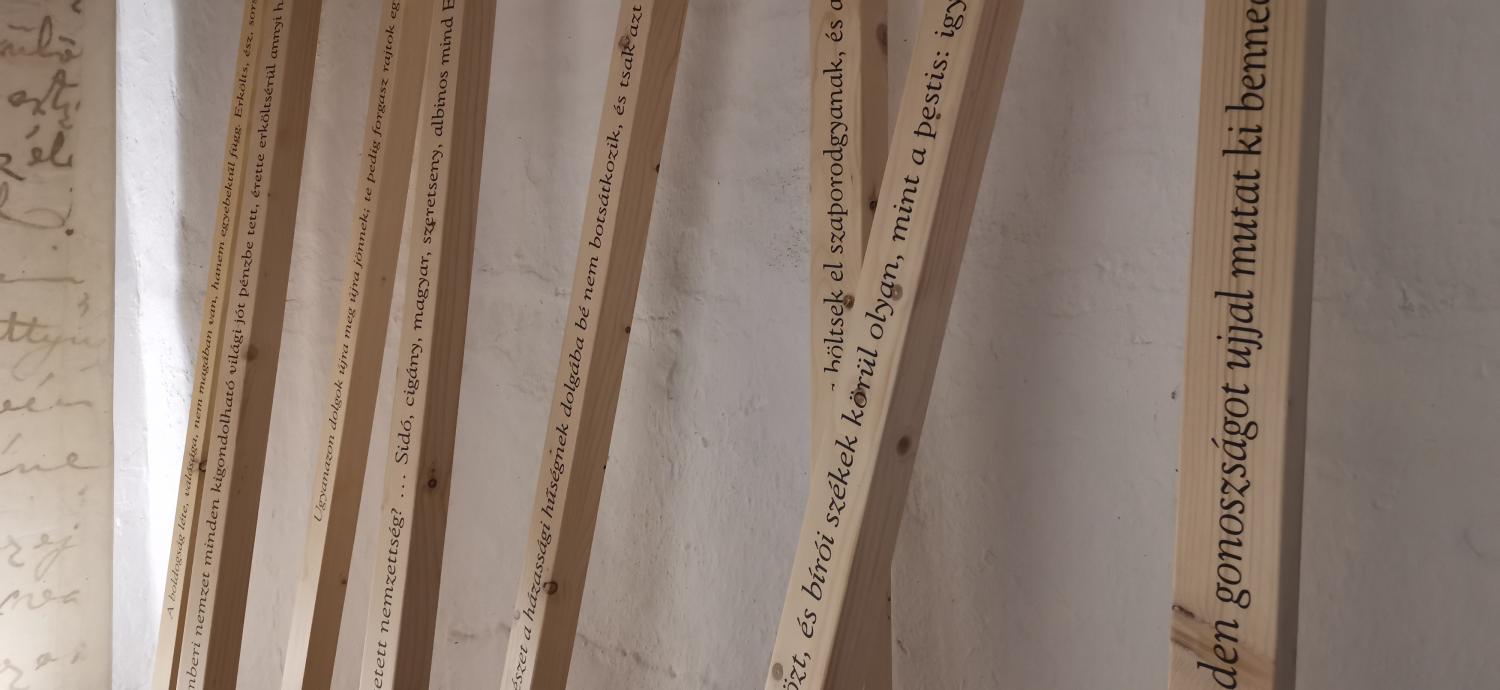 A boldogság léte, valósága, nem magában van, hanem egyebektűl függ. Erkölts, ész, sors
mberi nemzet minden kigondolható világi jót pénzbe tett, érette erköltsérül annyi h
Ugyanazon dolgok újra meg újra jönnek; te pedig forgasz rajtok eg
etett nemzettség? ... Sidó, cigány, magyar, szeretseny, albinos mind E
észet a házassági hűségnek dolgába bé nem botsátkozik, és tsak azt
- höltsek el szaporodgyanak, és a
özt, és bírói székek körül olyan, mint a pestis: így
den gonoszságot ujjal mutat ki benned